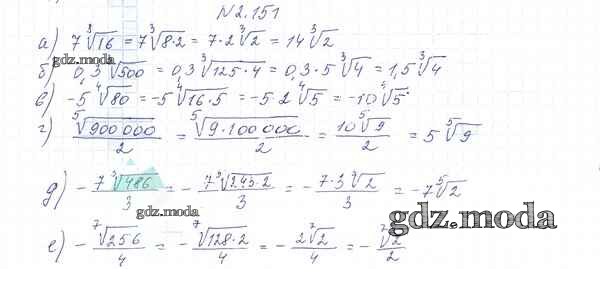 N 2.151
а) 7∛16 = 7∛(8·2) = 7·2∛2 = 14∛2
б) 0,3∛500 = 0,3∛(125·4) = 0,3·5∛4 = 1,5∛4
gdz.moda
в) -5⁴√80 = -5⁴√(16·5) = -5·2⁴√5 = -10⁴√5
г) ⁵√900000/2 = ⁵√(9·100000)/2 = 10⁵√9/2 = 5⁵√9
д) -7⁵√486/3 = -7⁵√(243·2)/3 = -7·3⁵√2/3 = -7⁵√2
gdz.moda
gdz.moda
е) -⁷√256/4 = -⁷√(128·2)/4 = -2⁷√2/4 = -⁷√2/2
gdz.moda